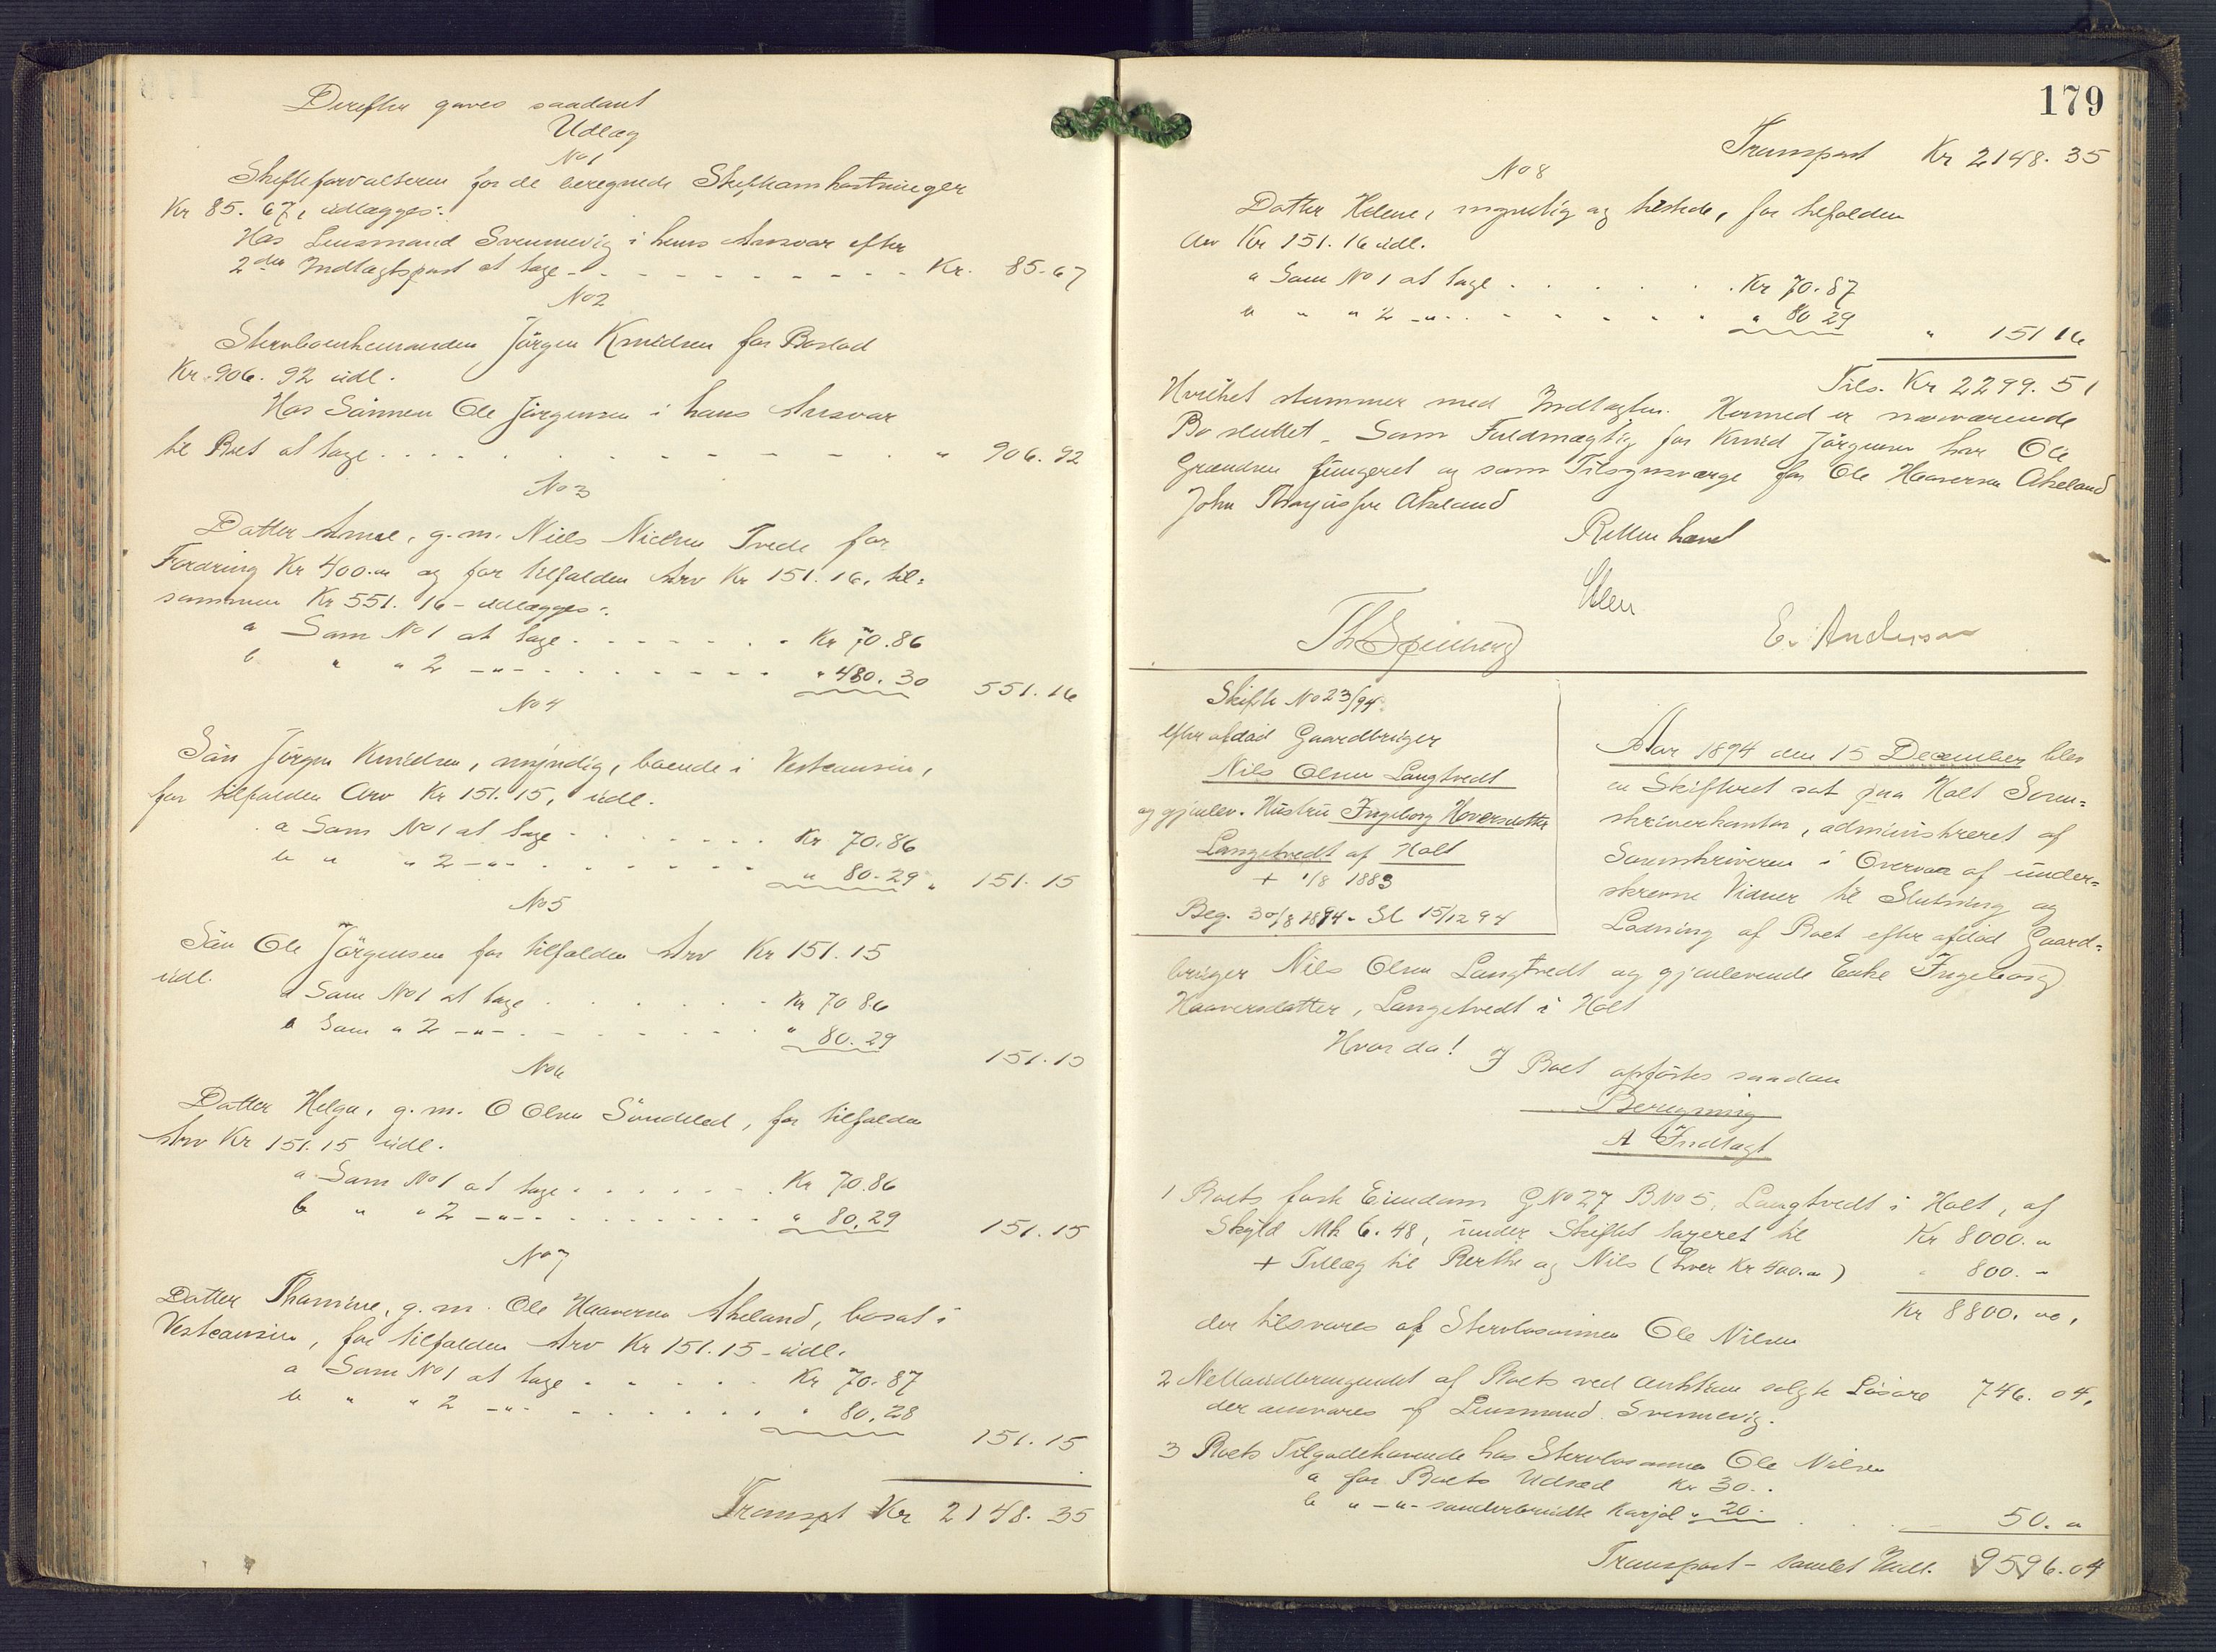 Derefter gaves saadant
Udlæg
No 1
Skifteforvalteren for de beregnede Skifteomkostninger
Kr 85.67, udlægges:
Hos Lensmand Svennevig i hans Ansvar efter
2den Indtægtspost at tage - - - - - Kr. 85.67
No 2
Stervboenkemanden Jörgen Knudsen for Boslod
Kr. 906.92 udl.
Hos Sönnen Ole Jörgensen i hans Ansvar
til Boet at tage . . . . . " 906.92
No 3
Datter Anne, g.m. Niels Nielsen Tvede for
Fordring Kr 400.00 og for tilfalden Arv Kr 151.16, til-
sammen Kr 551.16 - udlægges:
a Som No 1 at tage - - - - - Kr 70.86
b " " 2 -"- - - - - - " 480.30 551.16
No 4
Sön Jörgen Knudsen, myndig, boende i Vestcausin,
for tilfalden Arv Kr 151.15, udl.
a Som No 1 at tage - - - - - Kr 70.86
b " " 2 -"- - - - - " 80.29 " 151.15
No 5
Sön Ole Jörgensen for tilfalden Arv Kr 151.15
udl.
a Som No 1 at tage . . . . . Kr 70 86
b Som " 2 -"- - - - - " 80.29
151.15
No 6
Datter Helga, g.m. O Olsen Söndeled, for tilfalden
Arv Kr 151.15 udl.
a Som No 1 at tage . . . . . Kr 70.86
b " " 2 -"- - - - - " 80.29 151.15
No 7
Datter Thomine, g.m. Ole Haaversen Akeland, bosat i
Vestcausin, for tilfalden Arv Kr 151.15 - udl.
a Som No 1 at tage - - - - Kr 70.87
b " " 2 -"- . . . . . " 80.28
151.15
Transpt Kr 2148.35
179
Transport Kr 2148.35
No 8
Datter Helene, myndig og tilstede, for tilfalden
Arv Kr 151.16 udl.
a Som No 1 at tage . . . . . Kr 70.87
b " " 2 -"- . . . . " 80 29
" 151 16
Tils. Kr 2299.51
Hvilket stemmer med Indtægten. Hermed er nærværende
Bo sluttet. Som Fuldmægtig for Knud Jörgensen har Ole
Grændsen fungeret og som Tilsynsværge for Ole Haaversen Akeland
John Akeland
Retten hævet
Th
E. Anderson
Skifte No 23/94
efter afdød Gaardbruger
Nils Olsen Langtvedt
og gjenlev. Hustru Ingeborg Hoversdatter
Langetvedt af Holt
+ 1/8 1883
Beg. 30/8 1894 - Sl 15/12 94
Aar 1894 den 15 December blev
en Skifteret sat paa Holt Soren-
skriverkontor, administreret af
Sorenskriveren i Overvær af under-
skrevne Vidner til Slutning og
Lodning af Boet efter afdød Gaard-
bruger Nils Olsen Langtvedt og gjenlevende Enke Ingeborg
Haaversdatter, Langetvedt i Holt
Hvorda!
I Boet opförtes saadan
Beregning
A Indtægt
1 Boets faste Eiendom GNo 27 BNo 5, Langtvedt i Holt, af
Skyld Mk 6.48, under Skiftet taxeret til Kr 8000."
+ Tillæg til Berthe og Nils (hver Kr 400.") 800.-
Kr 8800.00,
der tilsvares af Stervbosönnen Ole Nilsen
2 Nettoudbringendet af Boets ved Auktion solgte Lösöre 746.04,
der ansvares af Lensmand Svennevig.
3 Boets Tilgodehavende hos Stervbosönnen Ole Nilsen
a for Boets Udsæd Kr 30..
b " -"- sonderbrudte Karjol " 20.-
50."
Transport - samlet Indt. 9596.04